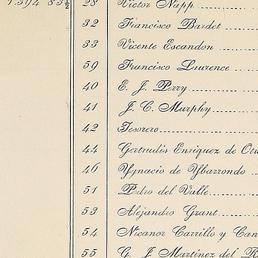 1.594 83½ 28 Victor Napp
32 Francisco Bardet
33 Vicente Escandon
59 Francisco Laurence
40 E. J. Perry
41 J. C. Murphy
42 Tesorero
44 Gertrudis Enriquez de
46 Ygnacio de Ybarrondo
51 Pedro del Valle
53 Alejandro Grant
54 Nicanor Carrillo y
55 G. J. Martinez del